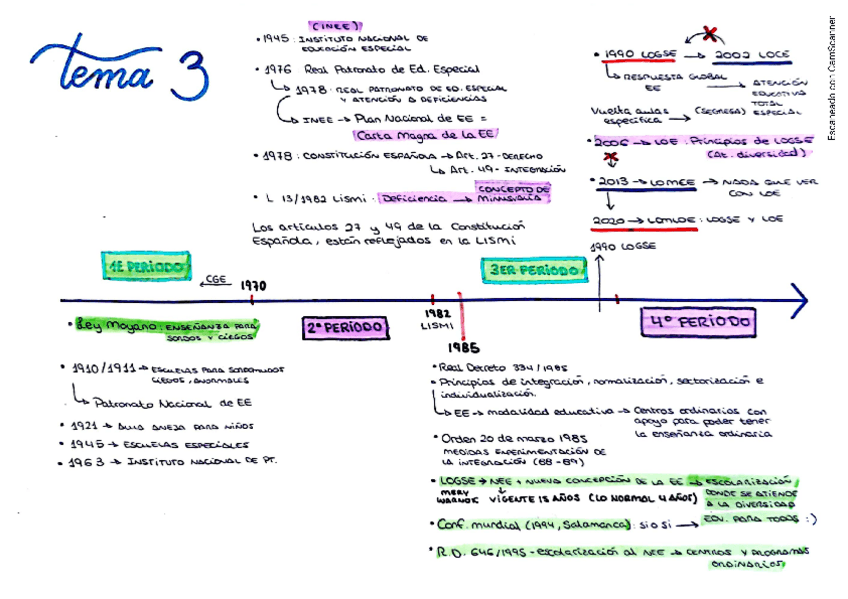 tema 3
(INEE)
• 1945: INSTITUTO NACIONAL DE
EDUCACIÓN ESPECIAL
• 1976 Real Patronato de Ed. Especial
1978: REAL PATRONATO DE ED. ESPECIAL
Y ATENCIÓN A DEFICIENCIAS
INEE → Plan Nacional de EE =
Carta Magna de la EE
• 1978: CONSTITUCIÓN ESPAÑOLA → Art. 27 - DERECHO
Art. 49 - INTEGRACIÓN
• L 13/1982 Lismi: Deficiencia → CONCEPTO DE
MINUSVALÍA
Los artículos 27 y 49 de la Constitución
Española, están reflejados en la LISMI
• 1990 LOGSE → 2002 LOCE
RESPUESTA GLOBAL
EE
→ ATENCIÓN
EDUCATIVA
TOTAL
ESPECIAL
Vuelta aulas
específica → (SEGREGA)
• 2006 → LOE: Principios de LOGSE
(At. diversidad)
• 2013 → LOMCE → NADA QUE VER
CON LOE
2020 → LOMLOE: LOGSE Y LOE
1990 LOGSE
1E PERIODO
CGE
1970
3ER PERIODO
• Ley Moyano: ENSEÑANZA PARA
SORDOS Y CIEGOS
2º PERIODO
1982
LISMI
1985
4º PERIODO
• 1910/1911 → ESCUELAS PARA SORDOMUDOS
CIEGOS, ANORMALES
Patronato Nacional de EE
• 1921 → AULA ANEJA PARA NIÑOS
• 1945 → ESCUELAS ESPECIALES
• 1963 → INSTITUTO NACIONAL DE PT.
• Real Decreto 334/1985
• Principios de integración, normalización, sectorización e
individualización.
EE → modalidad educativa → Centros ordinarios con
apoyo para poder tener
la enseñanza ordinaria
• Orden 20 de marzo 1985
MEDIDAS EXPERIMENTACIÓN DE
LA INTEGRACIÓN (88-89)
• LOGSE → NEE + NUEVA CONCEPCIÓN DE LA EE → ESCOLARIZACIÓN
DONDE SE ATIENDE
A LA DIVERSIDAD
MERY
WARNOK
VIGENTE 15 AÑOS (LO NORMAL 4 AÑOS)
• Conf. mundial (1994, Salamanca): si o si → EDU. PARA TODOS :)
• R.D. 646/1995 - escolarización al NEE → CENTROS Y PROGRAMAS
ORDINARIOS
Escaneado con CamScanner